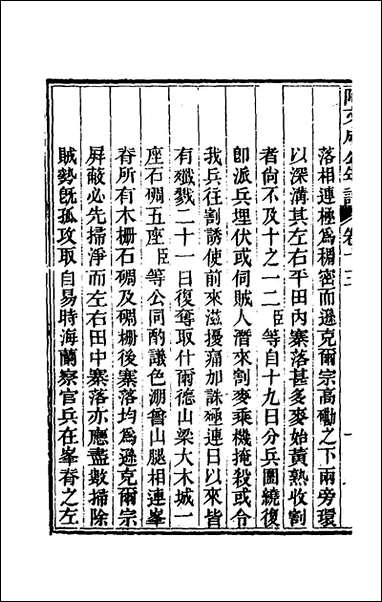 阿文成公年譜 卷十三
落相連極為稠密而遜克爾宗高磡之下兩旁環
以深溝其左右平田內寨落甚多麥始黃熟收割
者尙不及十之一二臣等自十九日分兵圍繞復
卽派兵埋伏或伺賊人潛來割麥乘機掩殺或令
我兵往割誘使前來滋擾痛加誅殛連日以來皆
有殲戮二十一日復奪取什爾德山梁大木城一
座石碉五座臣等公同酌議色淜普山腿相連峯
脊所有木柵石碉及碉柵後寨落均為遜克爾宗
屏蔽必先掃淨而左右田中寨落亦應盡數掃除
賊勢旣孤攻取自易時海蘭察官兵在峯脊之左